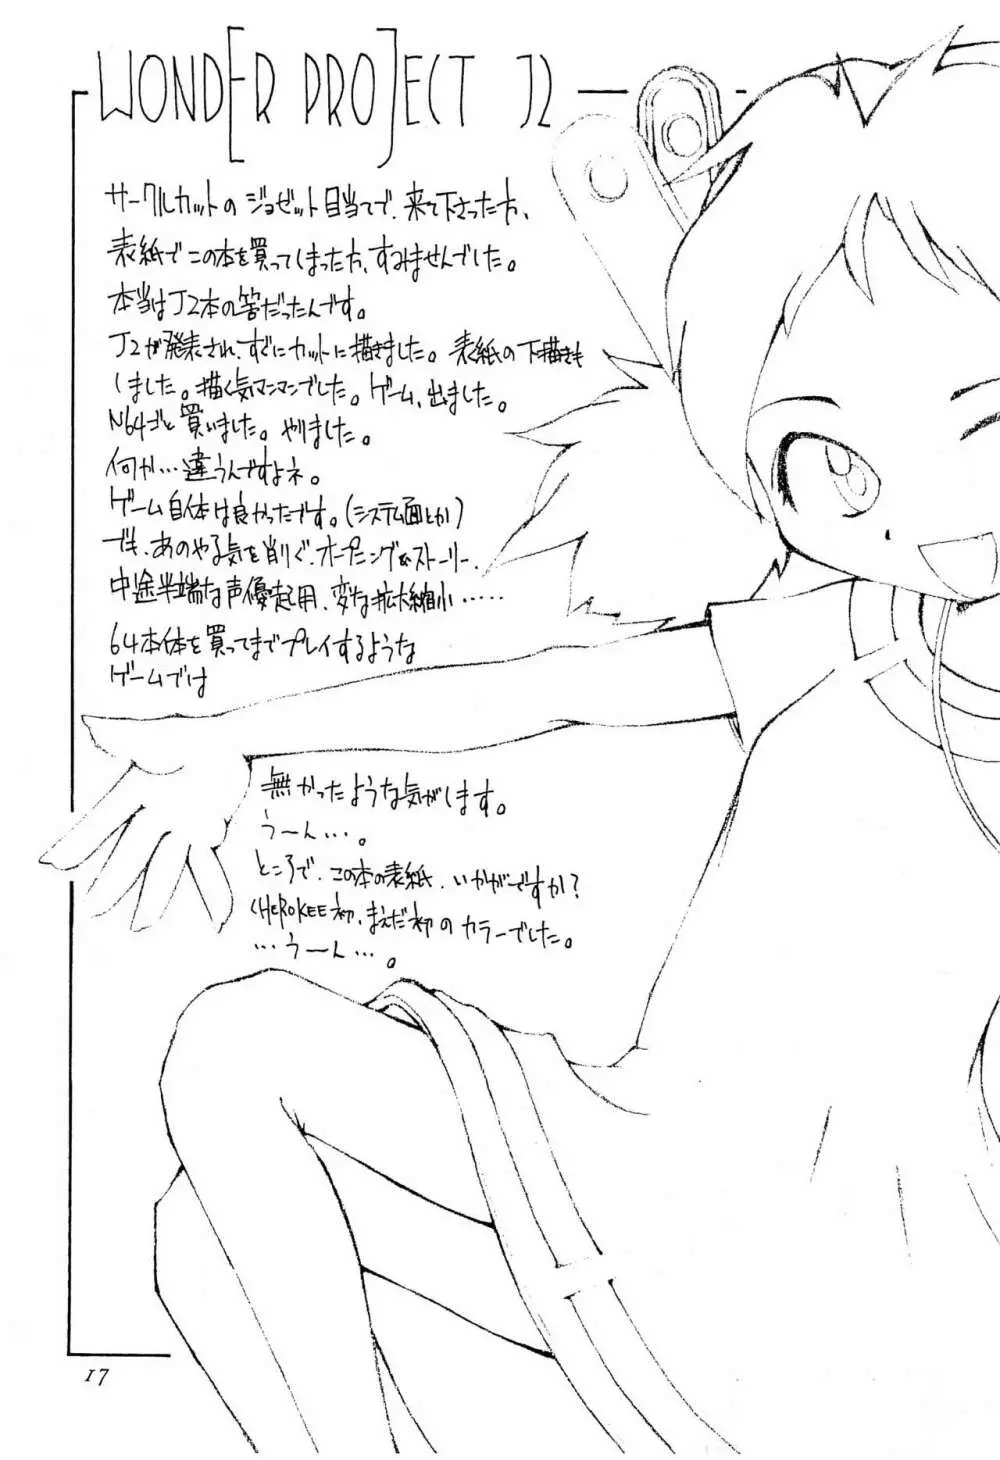 WOND[ER PRO]ECT J2
サークルカットのジョゼット目当てで、来て下さった方、
表紙でこの本を買ってしまった方、すみませんでした。
本当はJ2本の筈だったんです。
J2が発表され、すぐにカットに描きました。表紙の下描きも
しました。描く気マンマンでした。ゲーム、出ました。
N64ごと買いました。やりました。
何か…違うんですよネ。
ゲーム自体は良かったです。(システム面とか)
でも、あのやる気を削ぐ、オープニング&ストーリー、
中途半端な声優起用、変な拡大縮小……
64本体を買ってまでプレイするような
ゲームでは
無かったような気がします。
うーん…。
ところで、この本の表紙、いかがですか?
CHEROKEE初、まんだ初のカラーでした。
…うーん…。
17